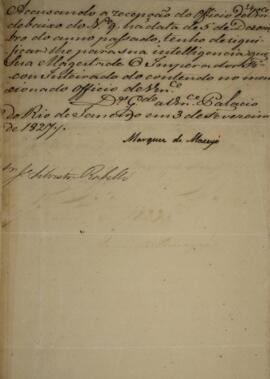 Accusando a recepção do Officio de Vm.ce
debaixo do N.º 9, na data de 5 de Dezem-
bro do anno passado, tenho de signi-
ficar-lhe para sua intelligencia, que
Sua Magestade O Imperador Fi-
cou Inteirado do contendo no men-
cionado officio de Vm.ce
D.s G.de a Vm.ce Palacio
do Rio de Janeiro em 3 de Fevereiro
de 1827.
Marquez de
S.r Silvestre Rebello